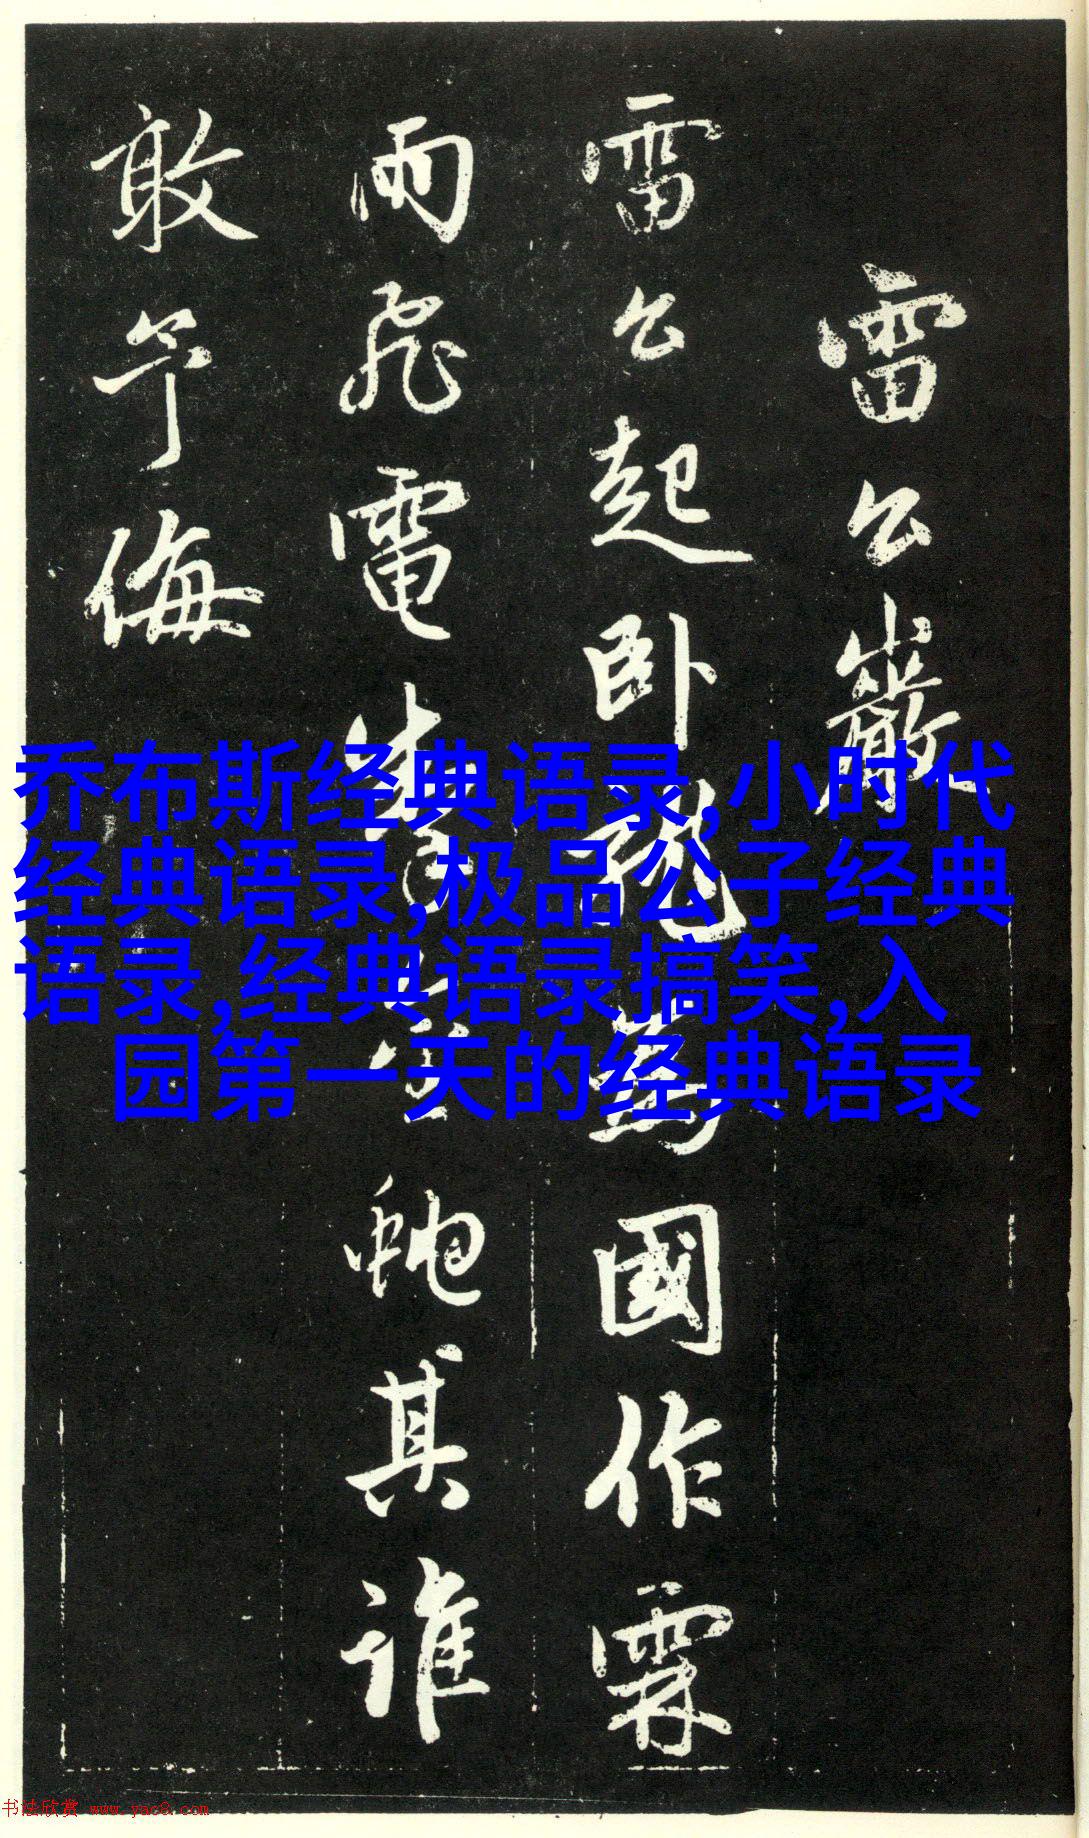 雷公巖
雷公起卧龍為國作霖
雨飛電虵其誰
敢予侮
乔布斯经典语录,小时代
经典语录,极品公子经典
语录,经典语录搞笑,入
园第一天的经典语录
书法欣赏 www.yac8.com